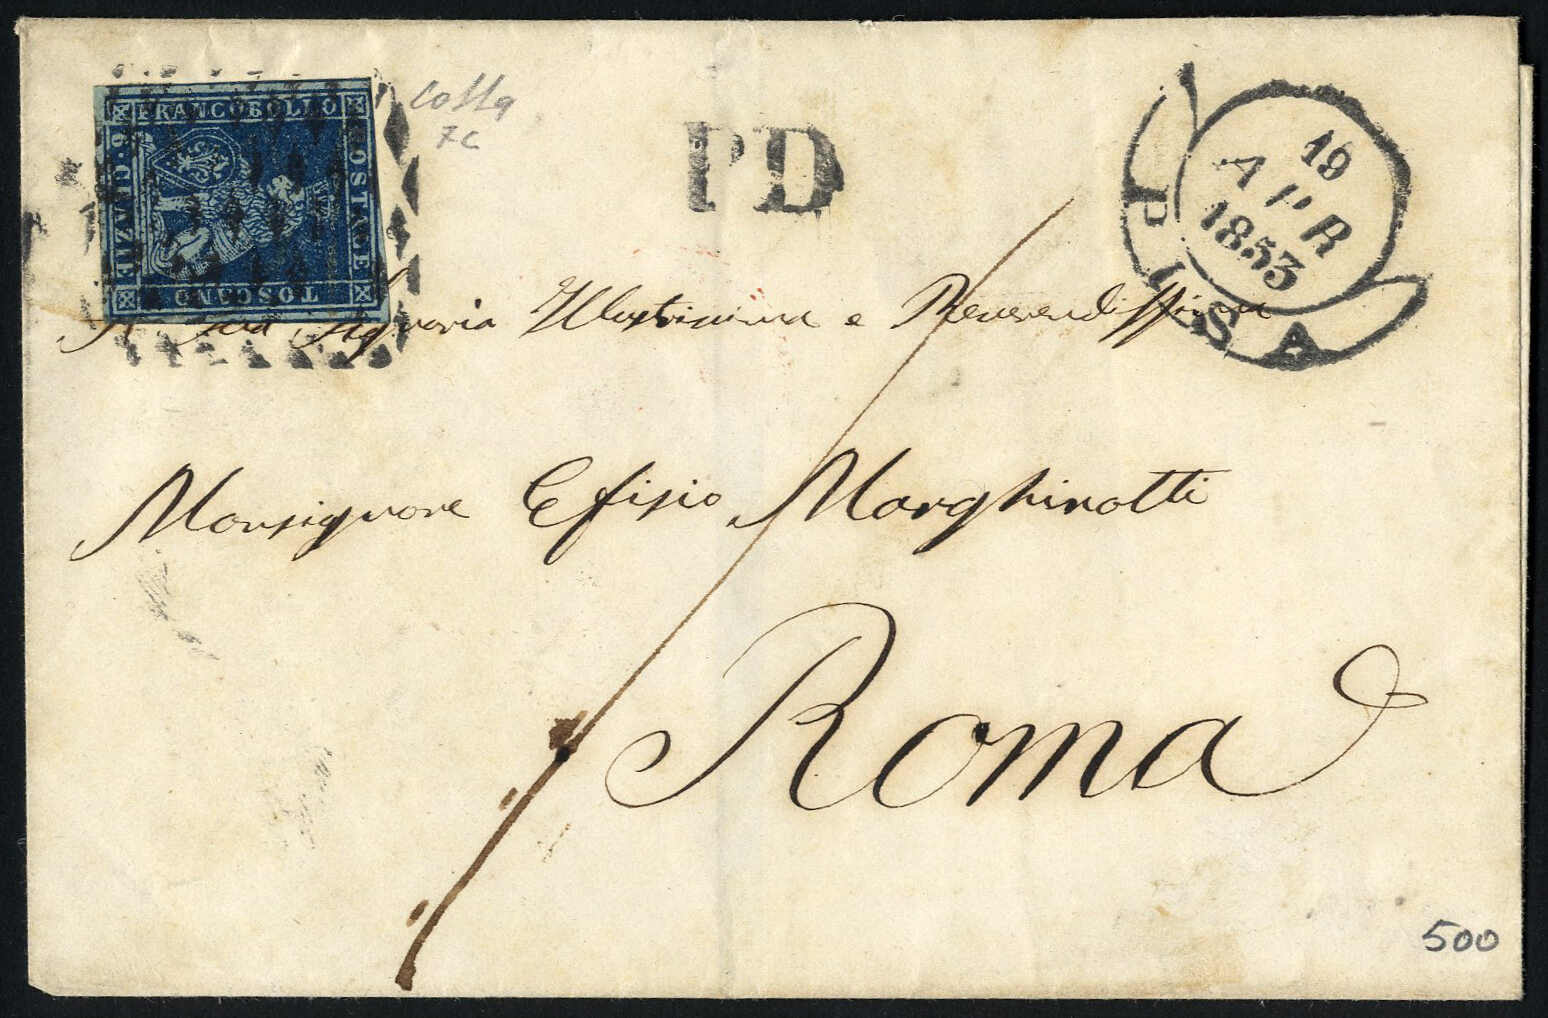 FRANCOBOLLO
POSTALE
TOSCANO
QUAZIE. 6
Colla
7c
PD
19
APR
1853
PISA
A Sua Signoria Illustrissima e Reverendissima
Monsignore Efisio Marghinotti
Roma
500